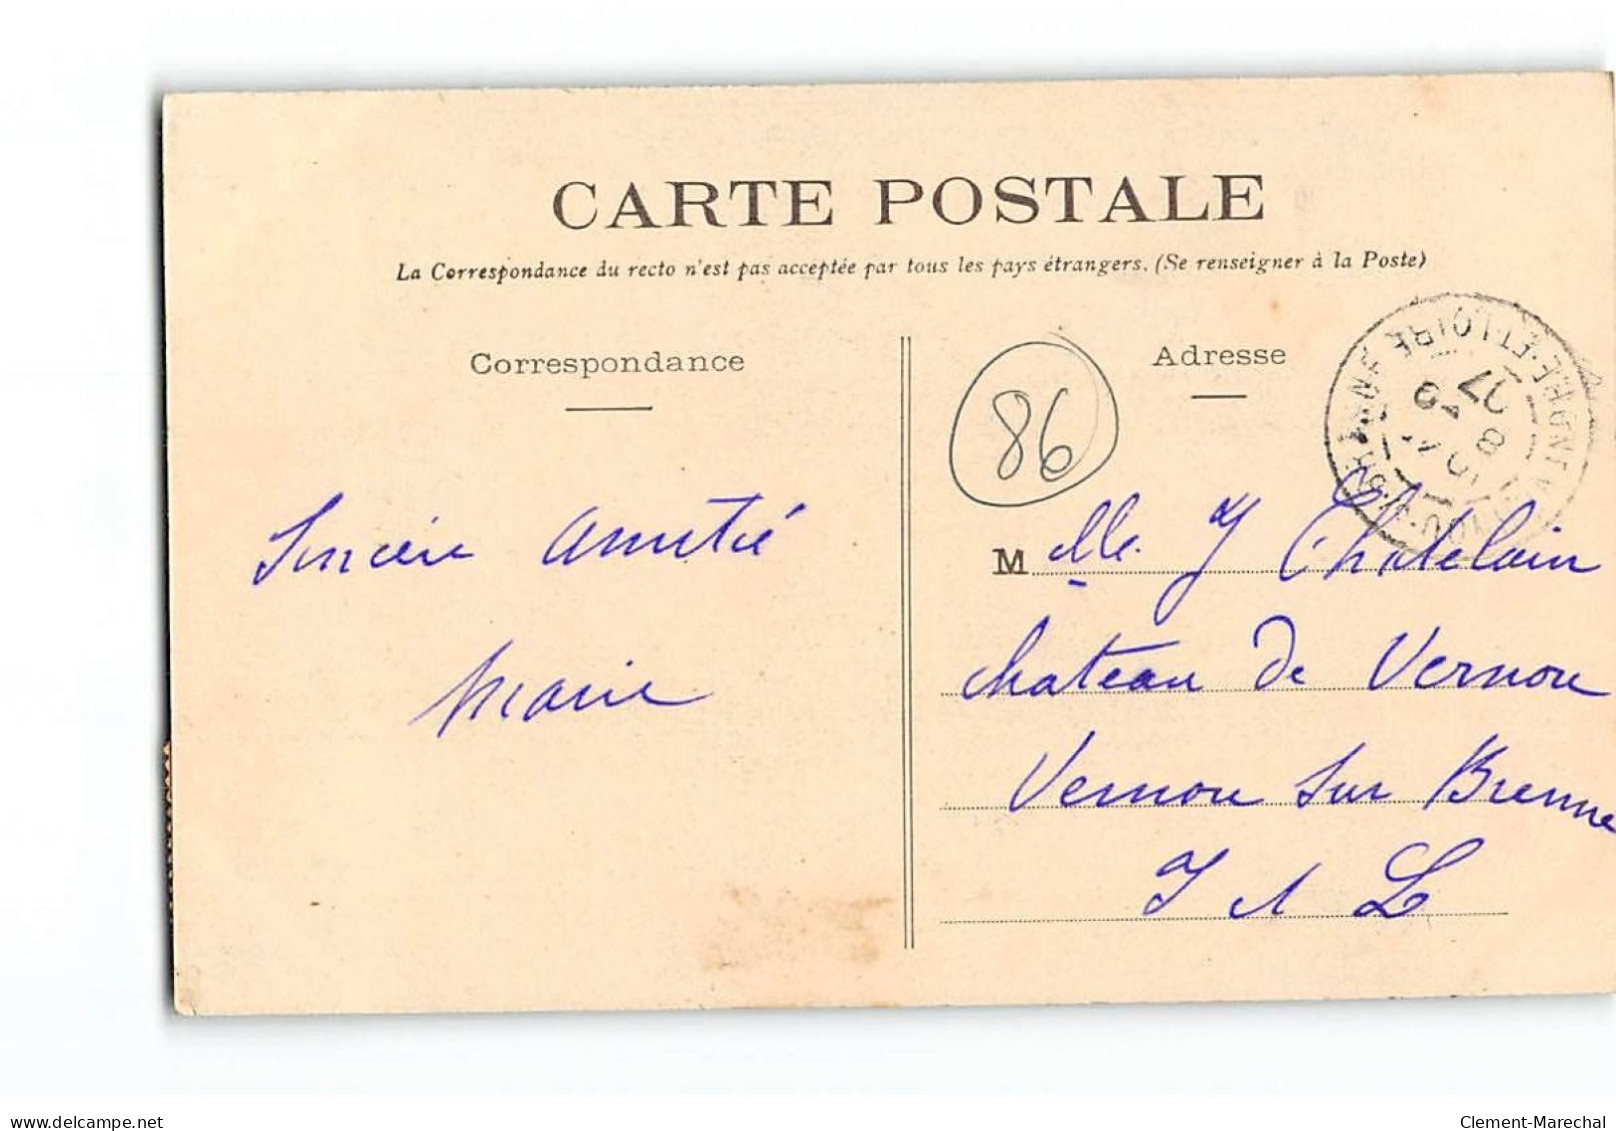 CARTE POSTALE
La Correspondance du recto n'est pas acceptée par tous les pays étrangers. (Se renseigner à la Poste)
Correspondance
Adresse
86
Sincère amitié
Marie
M elle. Y Chatelain
chateau de Vernou
Vernou sur Brenne
I & L
INDRE-ET-LOIRE
delcampe.net
Clement-Marechal